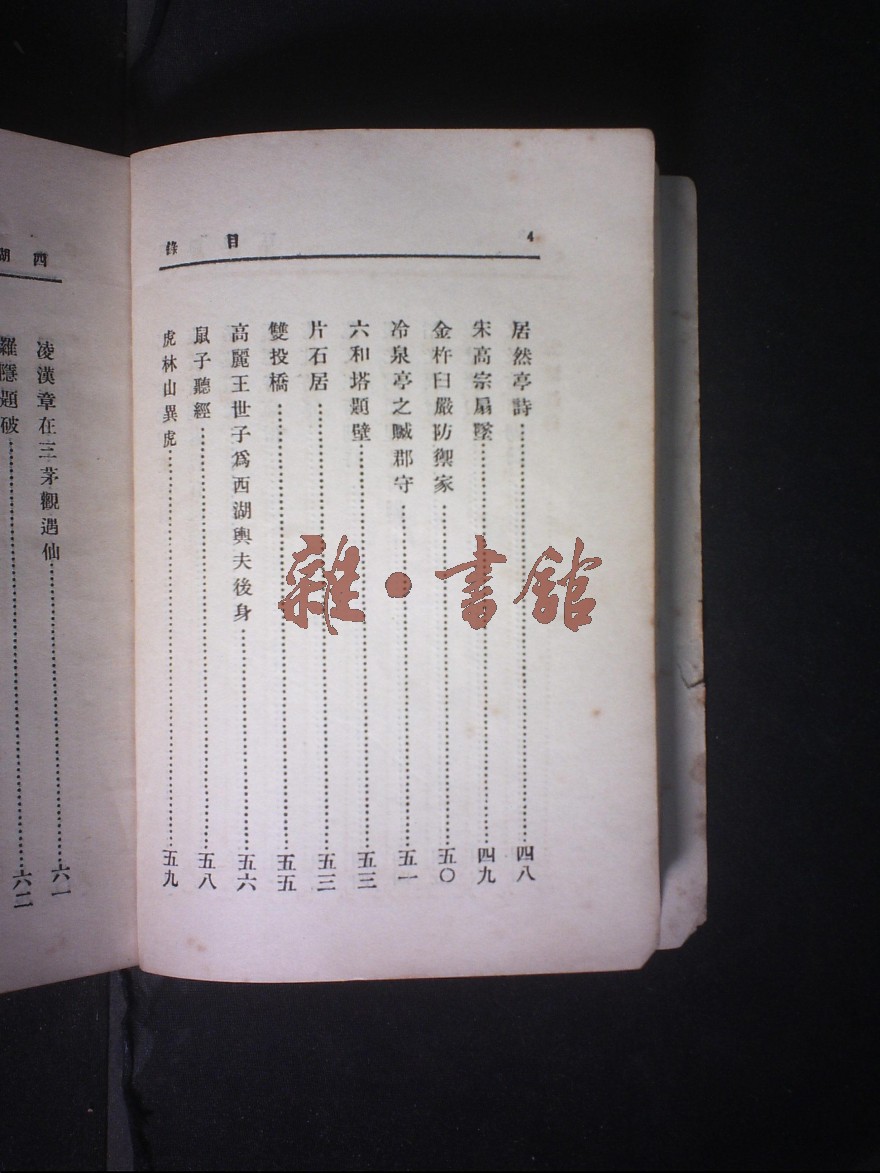 目錄 4
居然亭詩……四八
宋高宗扇墜……四九
金杵臼嚴防禦家……五〇
冷泉亭之贓郡守……五一
六和塔題壁……五三
片石居……五三
雙投橋……五五
高麗王世子爲西湖輿夫後身……五六
鼠子聽經……五八
虎林山異虎……五九
雜·書館
西湖
凌漢章在三茅觀遇仙……六一
羅隱題破……六二